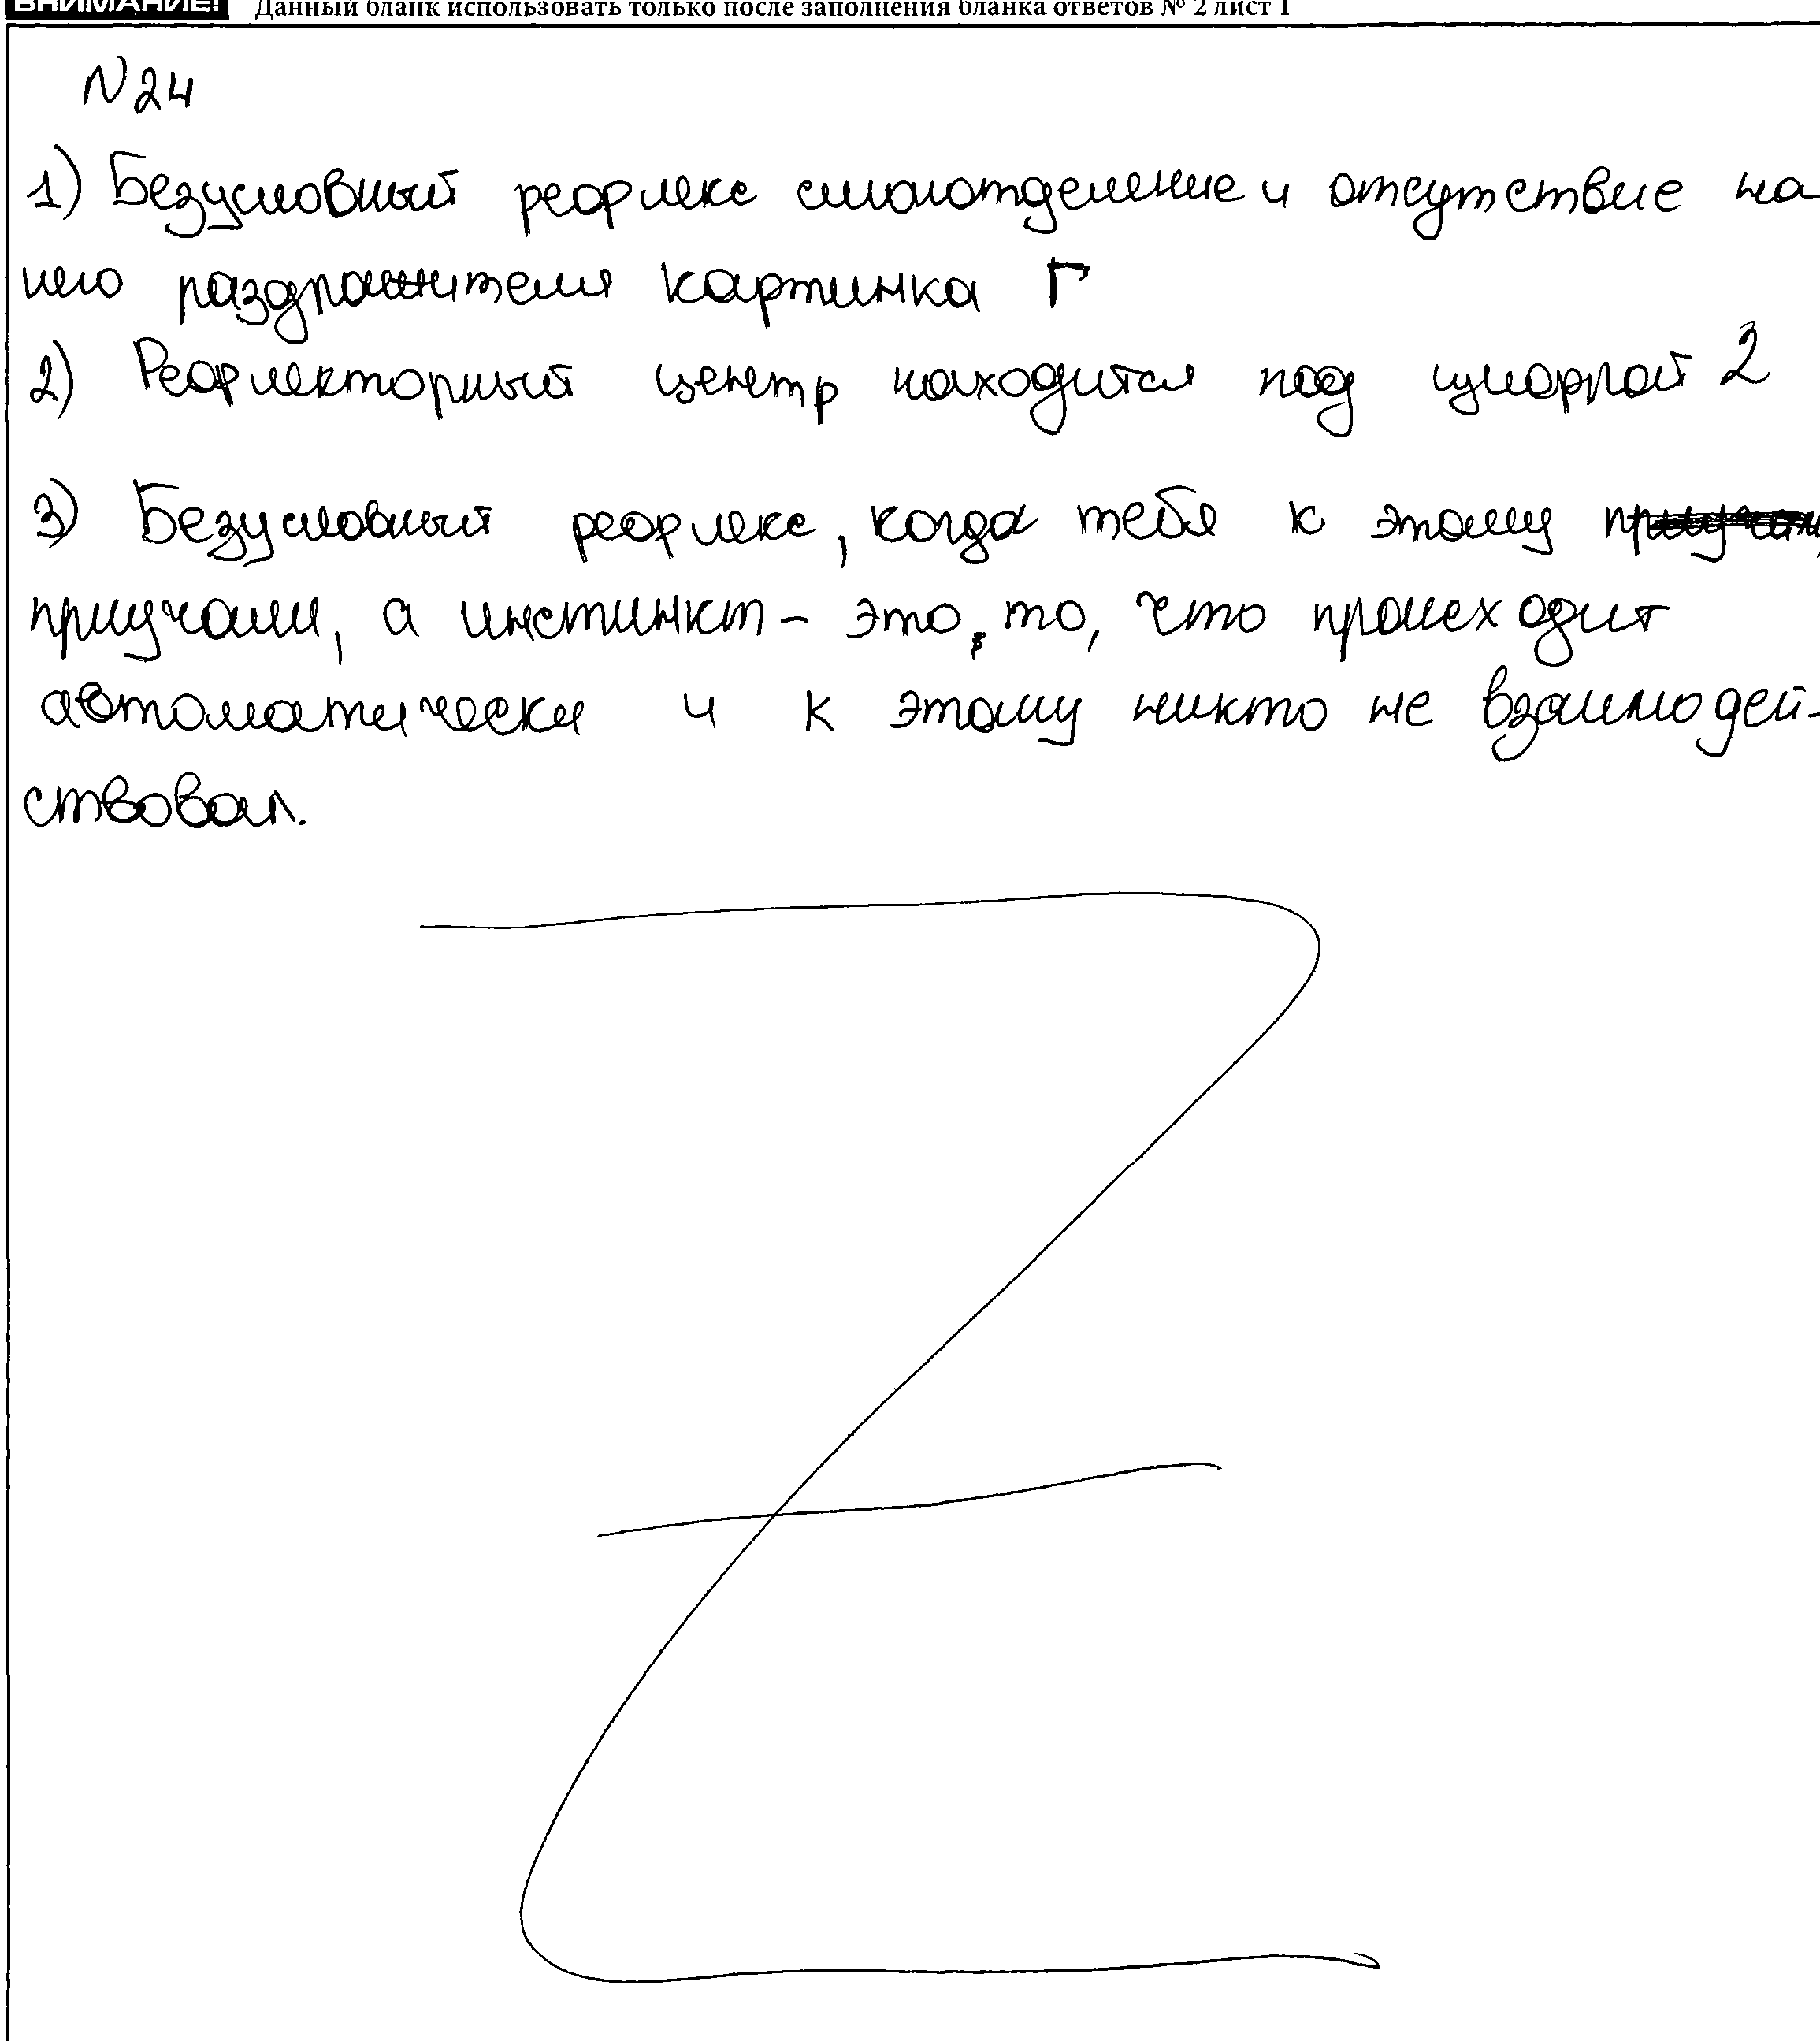 ВНИМАНИЕ! Данный бланк использовать только после заполнения бланка ответов № 2 лист 1
N24
1) Безусловный рефлекс слюноотделение и отсутствие на-
него раздражителя картинка Г
2) Рефлекторный центр находится под цифрой 2
3) Безусловный рефлекс, когда тебя к этому
приучали, а инстинкт - это, то, что происходит
автоматически и к этому никто не взаимодей-
ствовал.